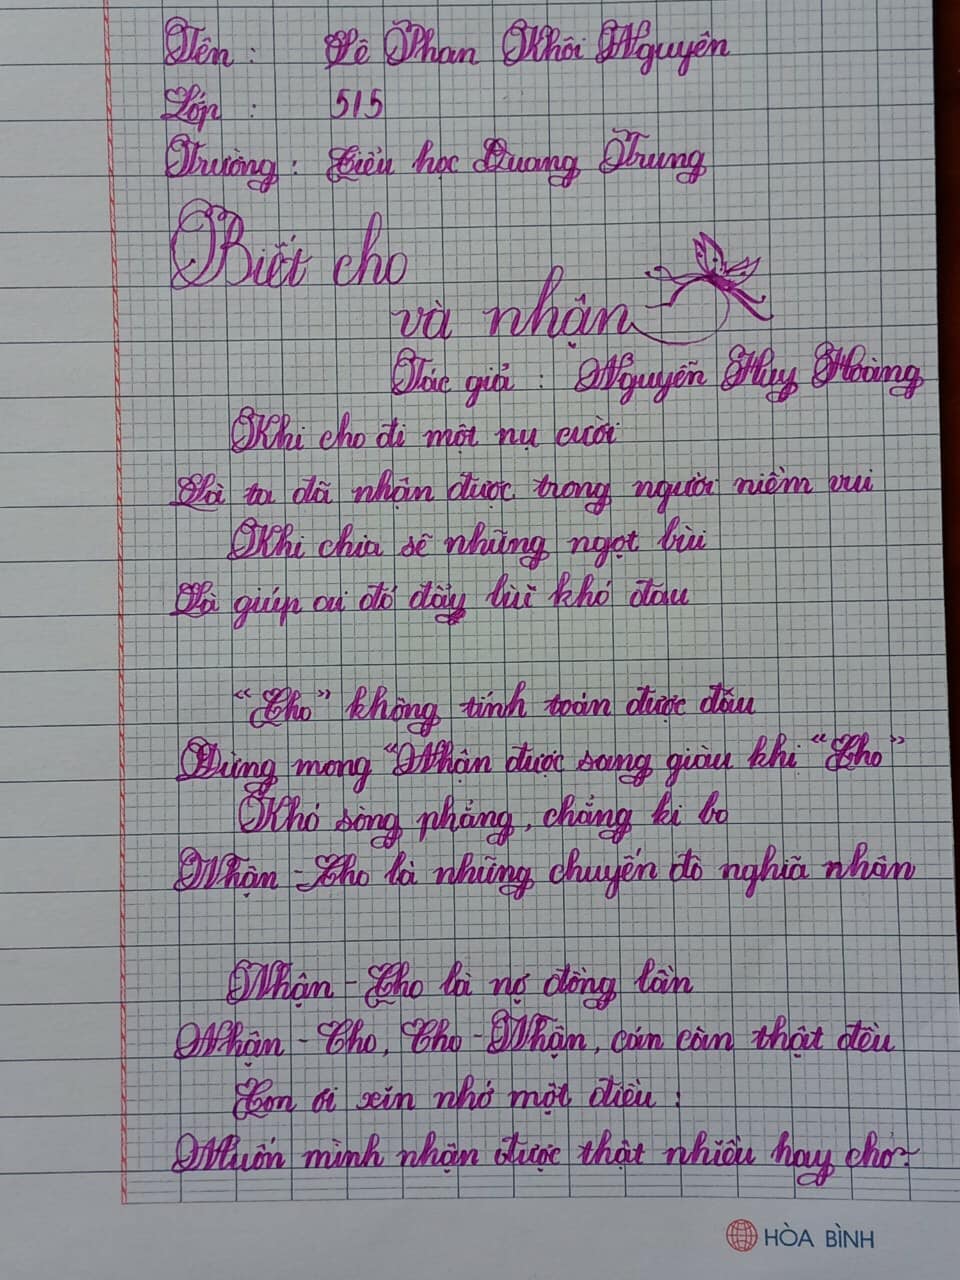 Tên : Lê Phan Khôi Nguyên
Lớp : 5/5
Trường : Tiểu học Quang Trung
Biết cho
và nhận
Tác giả : Nguyễn Huy Hoàng
Khi cho đi một nụ cười
Là ta đã nhận được trong người niềm vui
Khi chia sẽ những ngọt bùi
Là giúp ai đó đẩy lùi khó đau
"Cho" không tính toán được đâu
Đừng mong "Nhận được sang giàu khi "Cho"
Khó sòng phẳng, chẳng ki bo
Nhận - Cho là những chuyến đò nghĩa nhân
Nhận - Cho là nợ đồng lần
Nhận - Cho, Cho - Nhận, cán cân thật đều
Con ơi xin nhớ một điều :
Muốn mình nhận được thật nhiều hay cho
HÒA BÌNH